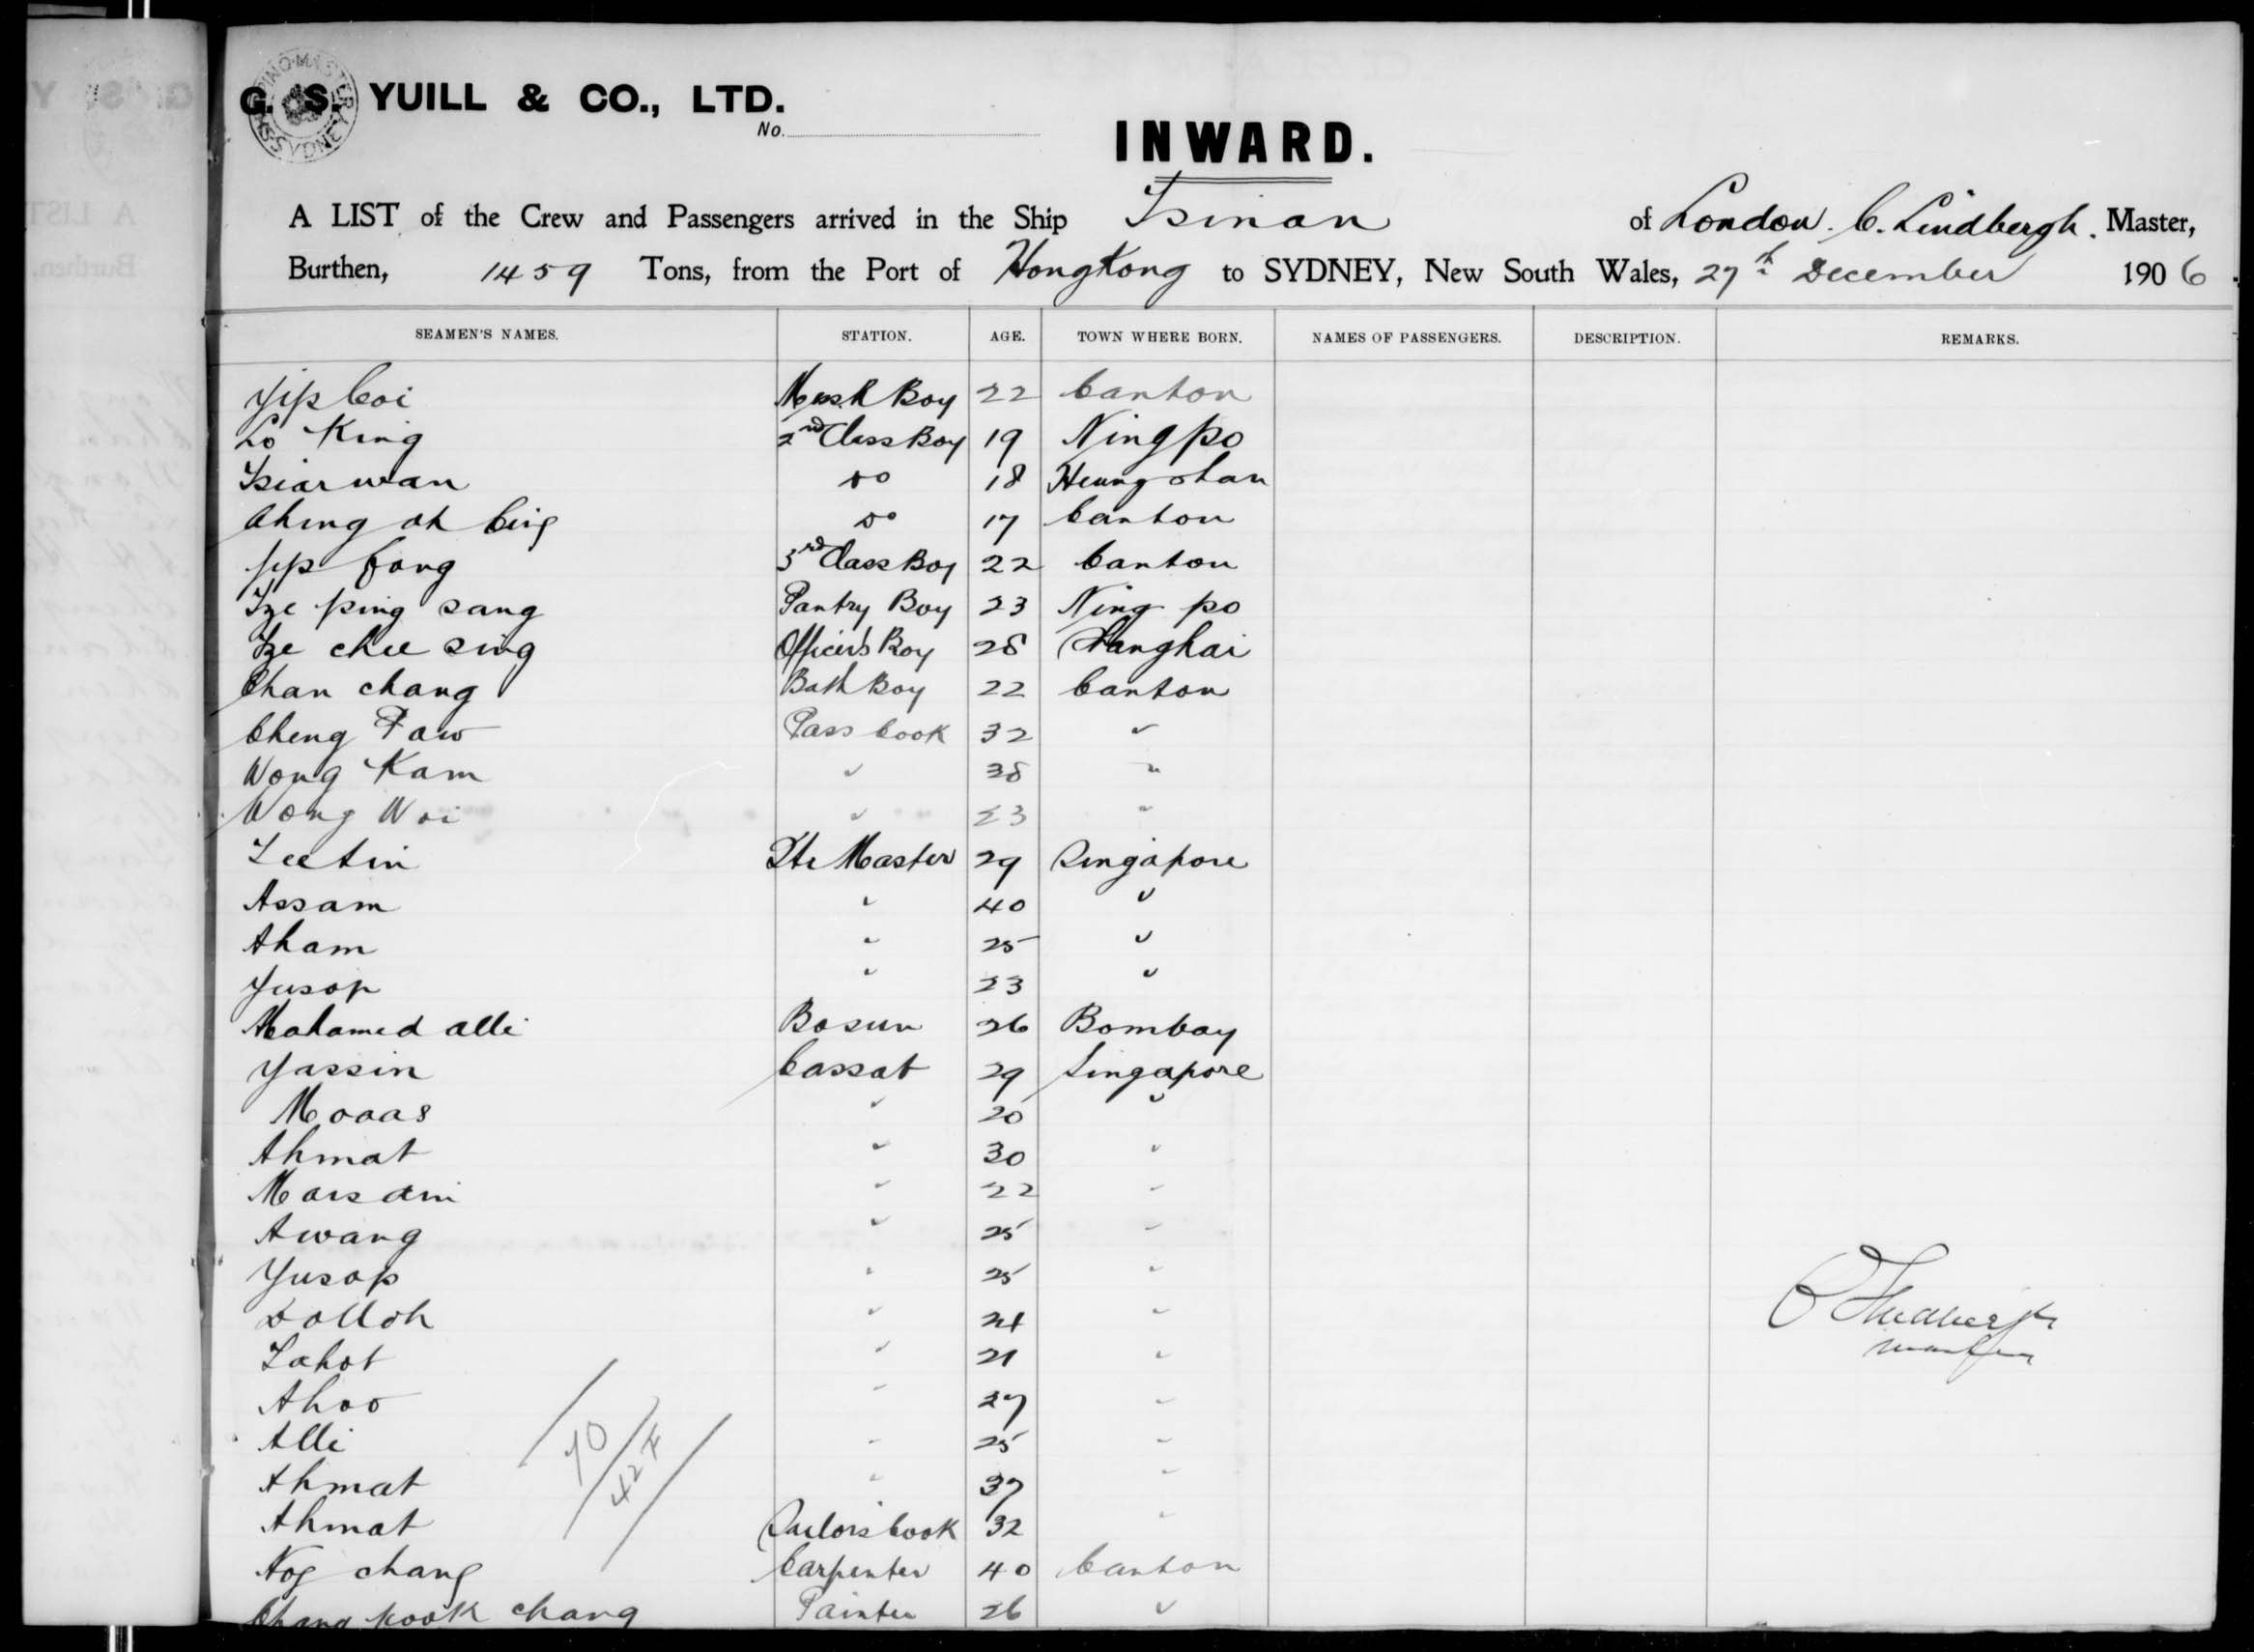 G. S. YUILL & CO., LTD.
No.
INWARD.
A LIST of the Crew and Passengers arrived in the Ship Tsinan of London. C. Lindbergh. Master,
Burthen, 1459 Tons, from the Port of HongKong to SYDNEY, New South Wales, 27th December 1906
SEAMEN'S NAMES. STATION. AGE. TOWN WHERE BORN. NAMES OF PASSENGERS. DESCRIPTION. REMARKS.
Yip Coi Mess R Boy 22 Canton
Lo King 2nd Class Boy 19 Ningpo
Tsiar wan do 18 Heung shan
Ahing ah Cing do 17 Canton
Yip fong 3rd Class Boy 22 Canton
Tze ping sang Pantry Boy 23 Ning po
Tze chee sing Officers Boy 28 Shanghai
Chan chang Bath Boy 22 Canton
Cheng Faw Pass Cook 32 "
Wong Kam " 38 "
Wong Woi " 23 "
Lee tin Qtr Master 29 Singapore
Assam " 40 "
Aham " 25 "
Yusop " 23 "
Mahamed alli Bosun 26 Bombay
Yassin Cassab 29 Singapore
Mooas " 20 "
Ahmat " 30 "
Marsdin " 22 "
Awang " 25 "
Yusop " 25 "
Dolloh " 24 "
Lahot " 21 "
Ahoo " 27 "
Alli " 25 "
Ahmat " 37 "
Ahmat Sailors Cook 32 "
Nog chang Carpenter 40 Canton
Chang kook chang Painter 26 "
C Lindbergh
master
70
42 F